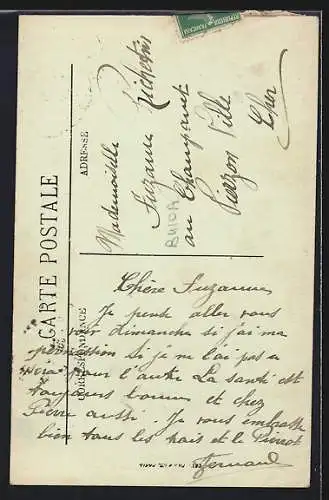 CARTE POSTALE
CORRESPONDANCE
ADRESSE
Mademoiselle
Suzanne Richetin
au Champanet
Vierzon Ville
Cher
Chère Suzanne
Je pense aller vous
voir dimanche si j'ai ma
permission Si je ne l'ai pas
sera pour l'autre La santé est
toujours bonne et chez
Pierre aussi. Je vous embrasse
bien tous les trois et le Pierrot
Fernand